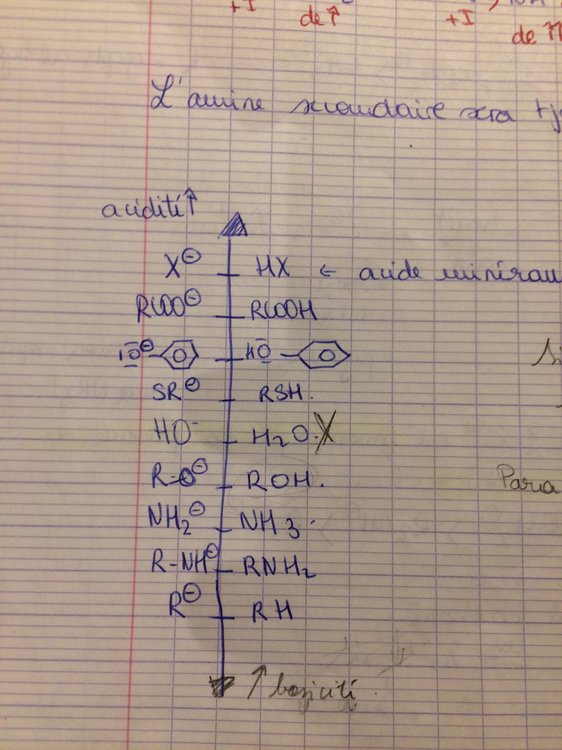 +I
de
+I
de
L'amine secondaire sera
acidité ↑
X⊖ HX ← acide minérau
RCOO⊖ RCOOH
IO⊖ HO
SR⊖ RSH.
HO⁻ H₂O.X
R-O⊖ ROH.
NH₂⊖ NH₃.
R-NH⊖ RNH₂
R⊖ RH
↑ baziciti